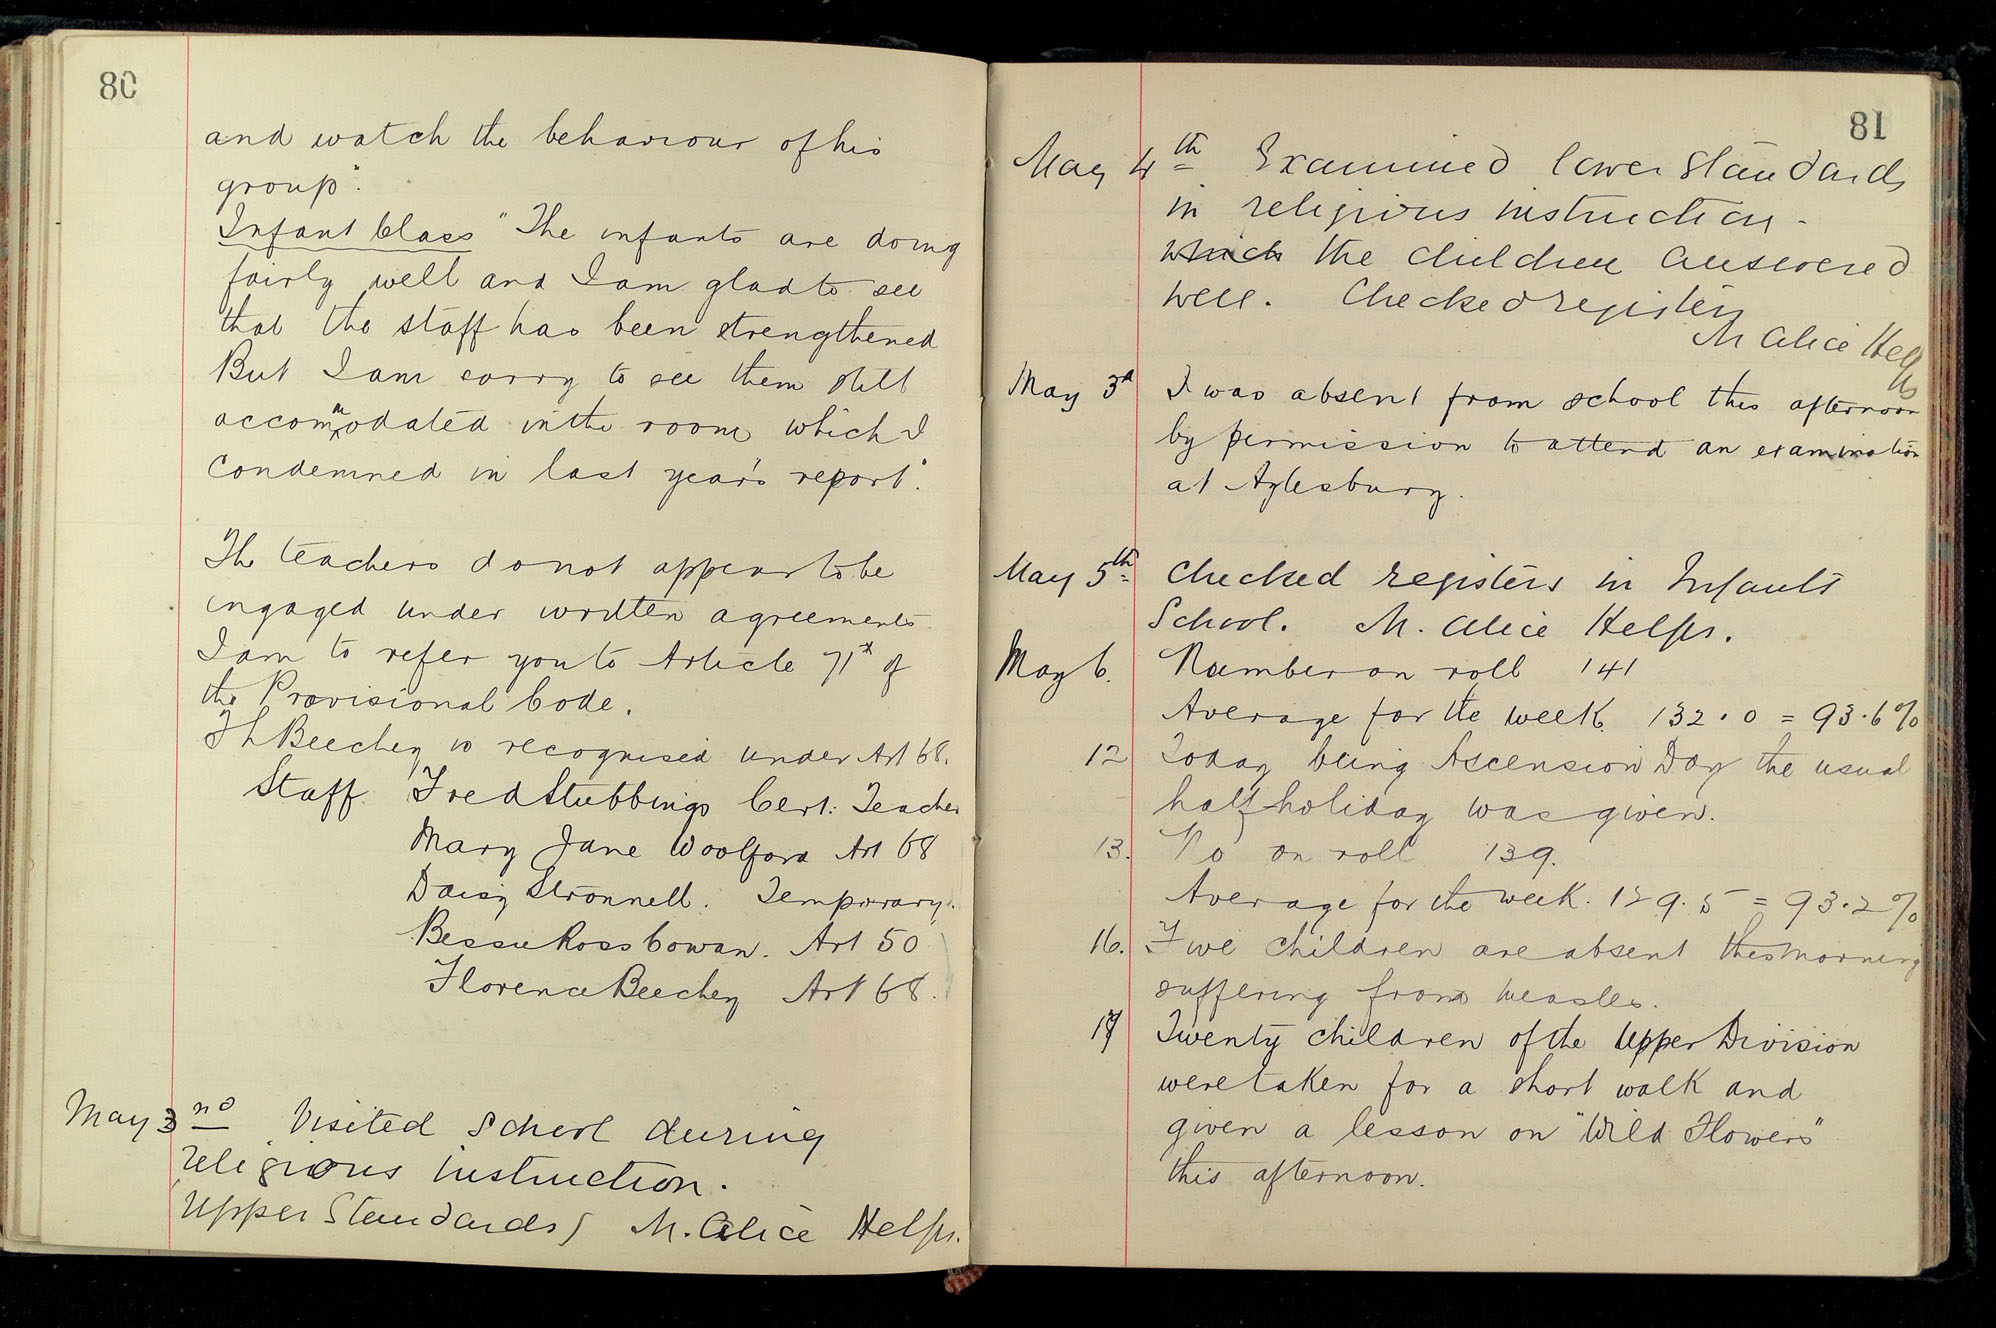 80
and watch the behaviour of his
group".
Infant Class "The infants are doing
fairly well and I am glad to see
that the staff has been strengthened
But I am sorry to see them still
accommodated in the room which I
condemned in last year's report".
The teachers do not appear to be
engaged under written agreements.
I am to refer you to Article 71* of
the Provisional Code.
Fl. Beechey is recognised under Art 68.
Staff. Fred Stubbings Cert: Teacher
Mary Jane Woolford Art 68
Daisy Stronnell. Temporary.
Bessie Ross Cowan. Art 50
Florence Beechey Art 68.
May 3rd Visited School during
religious instruction.
Upper Standards) M. Alice Helps.
81
May 4th Examined lower Standards
in religious instruction -
which the children answered
well. Checked registers
M Alice Helps
May 3d I was absent from school this afternoon
by permission to attend an examination
at Aylesbury.
May 5th Checked registers in Infants
School. M. Alice Helps.
May 6. Number on roll 141
Average for the week. 132.0 = 93.6%
12 Today being Ascension Day the usual
half holiday was given.
13. No on roll 139.
Average for the week. 129.5 = 93.2%
16. Five children are absent this morning
suffering from measles.
17 Twenty children of the Upper Division
were taken for a short walk and
given a lesson on "Wild Flowers"
this afternoon.